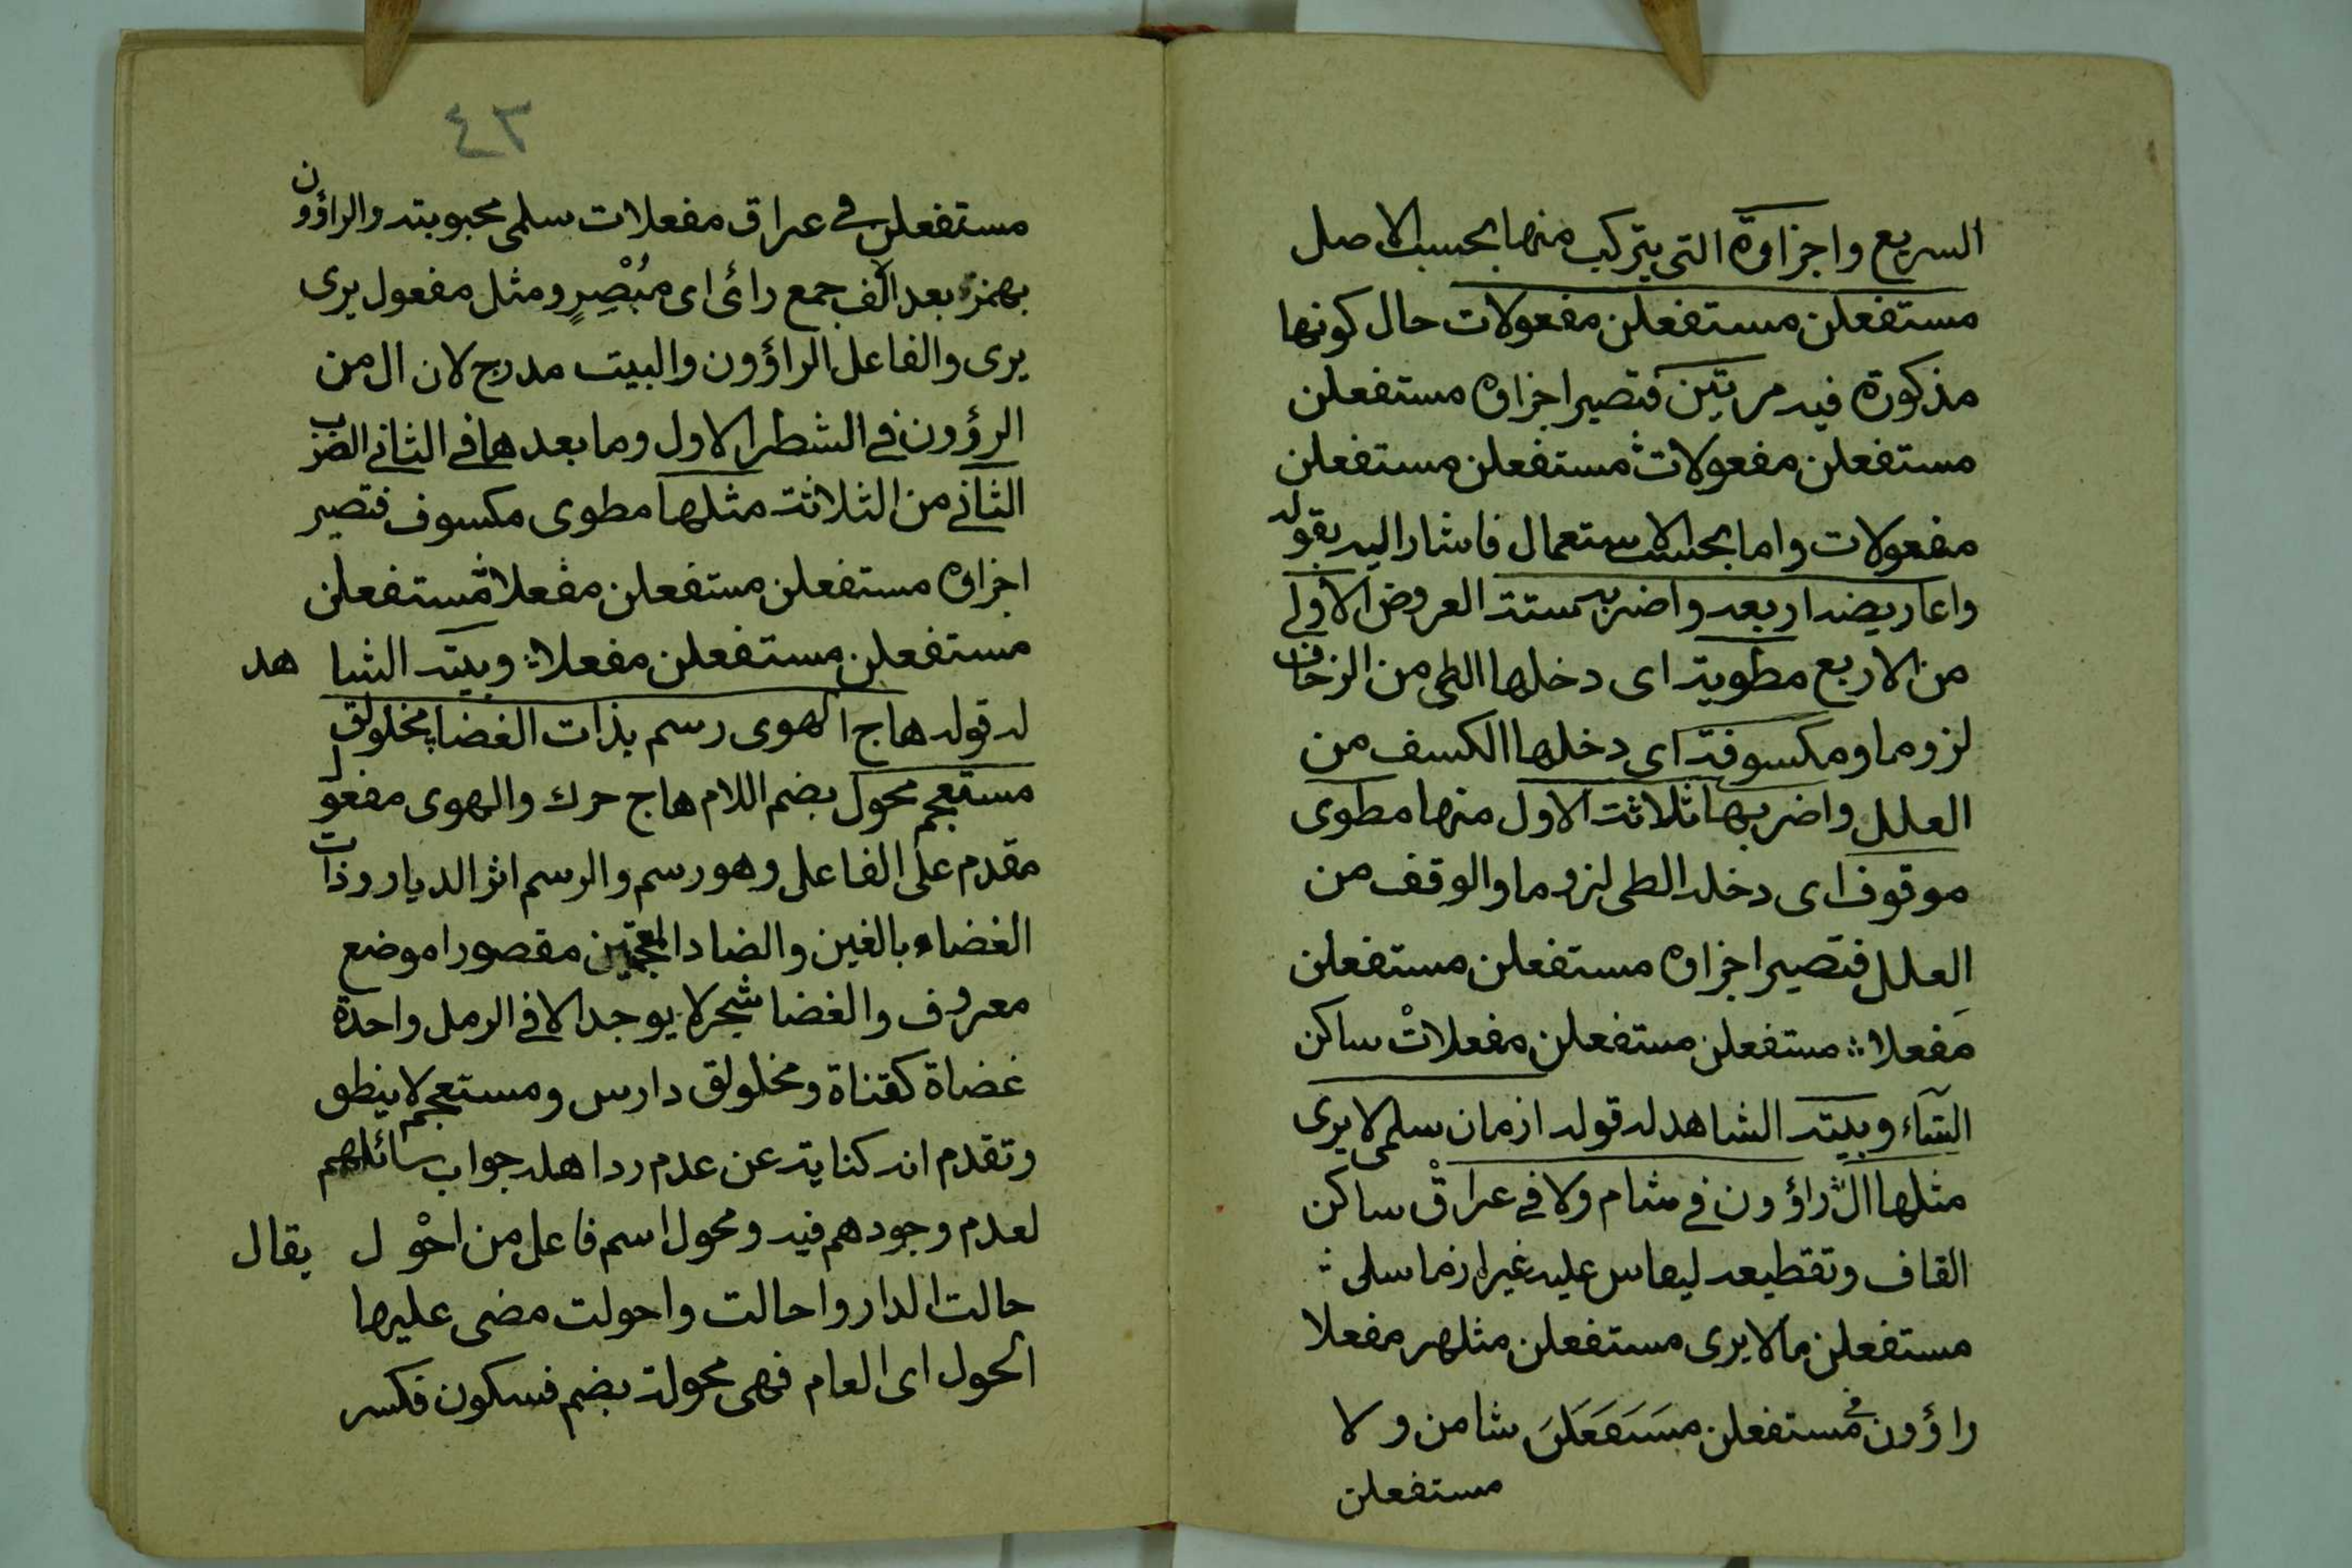 السريع واجزاؤه التى يتركب منها بحسب الاصل
مستفعلن مستفعلن مفعولات حال كونها
مذكورة فيه مرتين فتصير اجزاؤه مستفعلن
مستفعلن مفعولات مستفعلن مستفعلن
مفعولات واما بحسب الاستعمال فاشار اليه بقوله
واعاريضه اربعه واضربه ستة العروض الاولى
من الاربع مطوية اى دخلها الطى من الزحاف
لزوما ومكسوفة اى دخلها الكسف من
العلل واضربها ثلاثة الاول منها مطوى
موقوف اى دخله الطى لزوما والوقف من
العلل فتصير اجزاؤه مستفعلن مستفعلن
مَفعلا مستفعلن مستفعلن مفعلاتْ ساكن
التاء وبيته الشاهد له قوله ازمان سلمى لا يرى
مثلها الراؤون فى شام ولا فى عراقْ ساكن
القاف وتقطيعه ليقاس عليه غيره ازما سلى
مستفعلن ما لا يرى مستفعلن مثلهر مفعلا
راؤون فى مستفعلن شامن ولا
مستفعلن
٤٣
مستفعلن فى عراق مفعلات سلمى محبوبته والراؤون
بهمزة بعد الالف جمع رائى اى مُبْصِرٍ ومثل مفعول يرى
يرى والفاعل الراؤون والبيت مدرج لان ال من
الرؤون فى الشطر الاول وما بعدها فى الثانى الضرب
الثانى من الثلاثة مثلها مطوى مكسوف فتصير
اجزاؤه مستفعلن مستفعلن مفعلا مستفعلن
مستفعلن مستفعلن مفعلا وبيته الشا هد
له قوله هاج الهوى رسم بذات الغضا مخلولق
مستعجم محول بضم اللام هاج حرك والهوى مفعول
مقدم على الفاعل وهو رسم والرسم اثر الديار وذات
الغضاء بالغين والضاد المعجمتين مقصورا موضع
معروف والغضا شجر لا يوجد الا فى الرمل واحدة
غضاة كقناة ومخلولق دارس ومستعجم لا ينطق
وتقدم انه كناية عن عدم رد اهله جواب سائلهم
لعدم وجودهم فيه ومحول اسم فاعل من احْول يقال
حالت الدار واحالت واحولت مضى عليها
الحول اى العام فهى محولة بضم فسكون فكسر